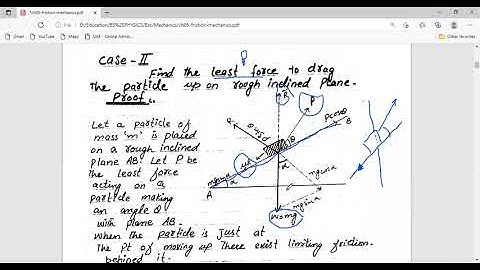 ch05-friction-mechanics.pdf
D:/Education/BS%20PHYSICS/Bsc/Mechanics/ch05-friction-mechanics.pdf
Other favorites
Case - II
P
Find the least force to drag
the particle up on rough inclined plane.
Proof:-
Let a particle of
mass 'm' is placed
on a rough inclined
plane AB. Let P be
the least force
acting on a
particle making
an angle θ
with plane AB.
When the particle is just at
The pt of moving up there exist limiting friction
behind it.
R
P
Pcosθ
B
μR
α
α
A
mgcosα
mgsinα
W=mg